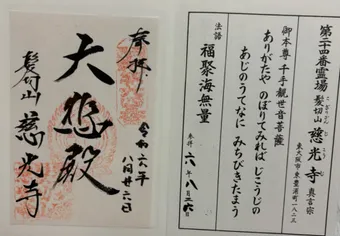 第二十四番霊場 髪切山 慈光寺 真言宗
東大阪市東豊浦町一八二三
御本尊 千手観世音菩薩
ありがたや のぼりてみれば じこうじの
あじのうてなに みちびきたまう
法語 福聚海無量
参拝 六年.八.二六
奉拝
令和六年
八月廿六日
大悲殿
髪切山 慈光寺